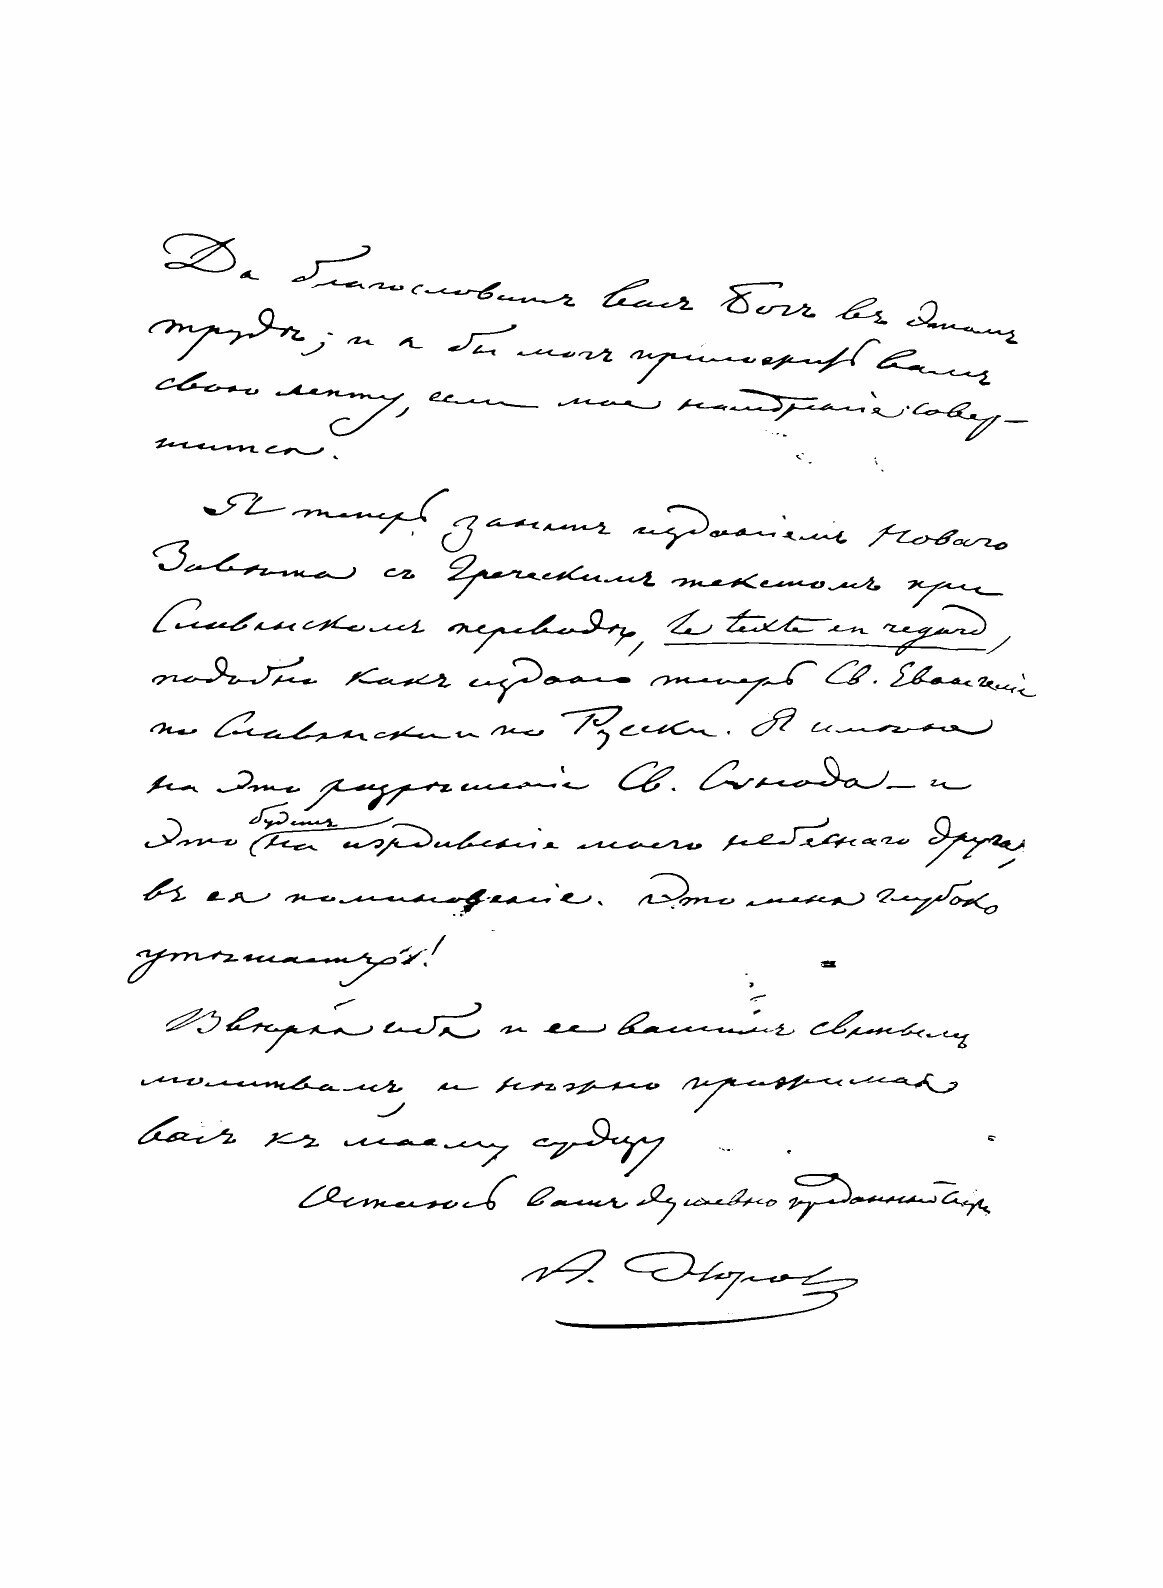 Да благословитъ васъ Богъ въ этомъ
трудѣ; и я бы могъ приложить вамъ
свою лепту, если мое намѣреніе совер-
шится.
Я теперь занятъ изданіемъ Новаго
Завѣта съ Греческимъ текстомъ при
Славянскомъ переводѣ, le texte en regard,
подобно какъ издано теперь Св. Евангеліе
по Славянски и по Русски. Я имѣю
на это разрѣшеніе Св. Синода – и
это будетъ на иждивеніе моего небеснаго друга,
въ ея поминовеніе. Это меня глубоко
утѣшаетъ!
Ввѣряя себя и ее вашимъ святымъ
молитвамъ, и нѣжно прижимая
васъ къ моему сердцу
Остаюсь вашъ душевно преданный
А.